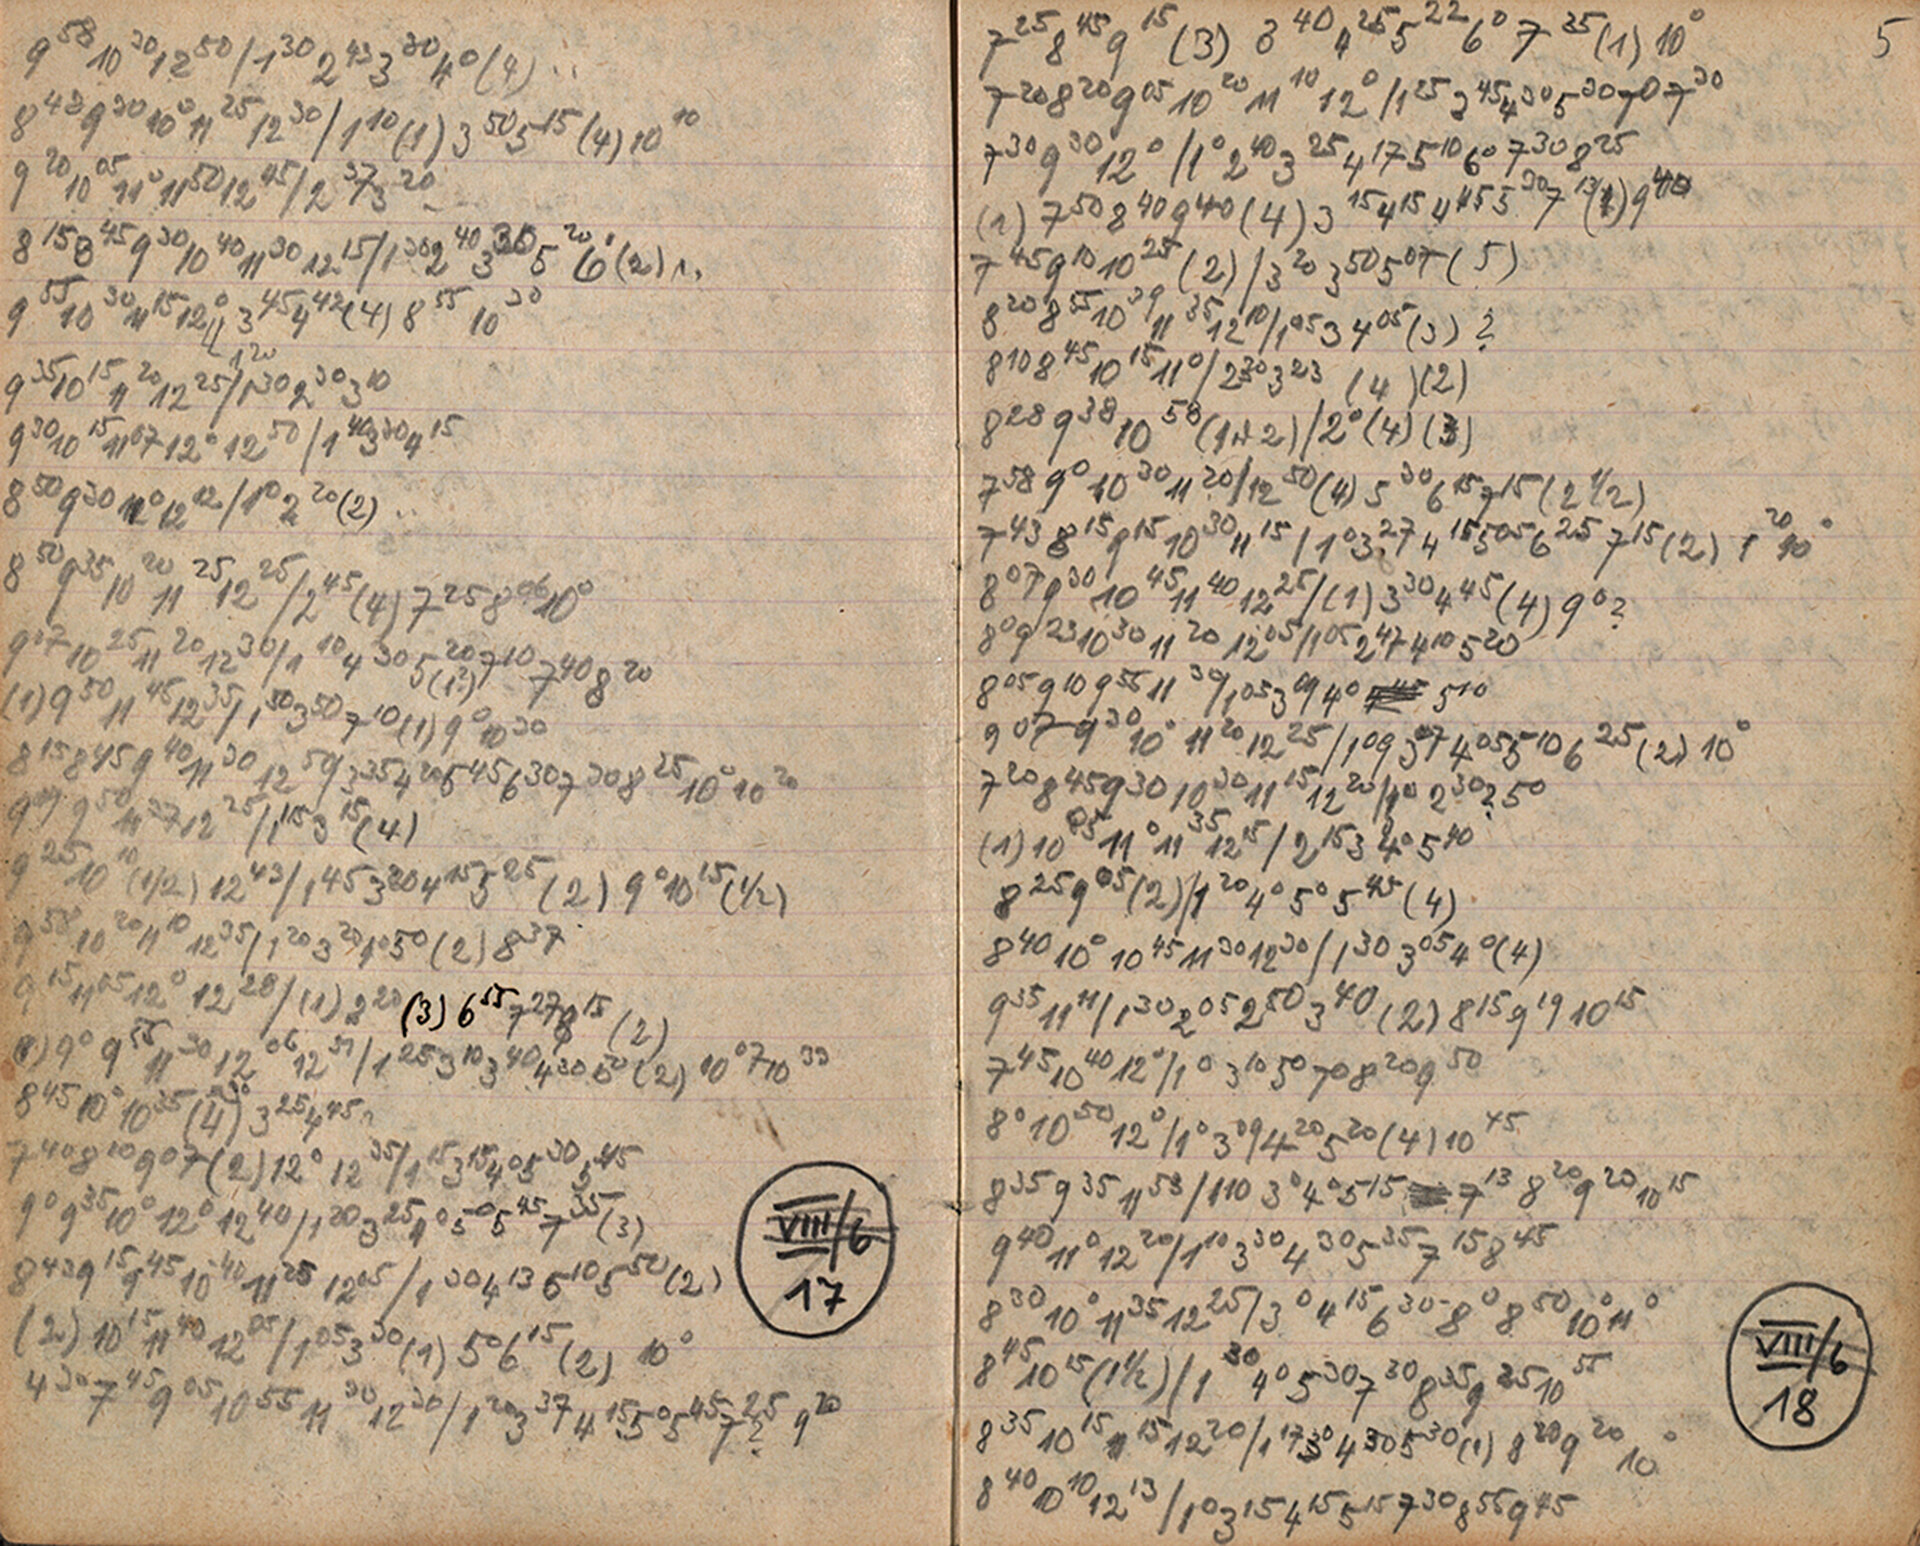 9⁵⁸ 10³⁰ 12⁵⁰ / 1³⁰ 2⁴³ 3³⁰ 4⁰ (4) ..
8⁴³ 9³⁰ 10⁰ 11²⁵ 12³⁰ / 1¹⁰ (1) 3⁵⁰ 5¹⁵ (4) 10¹⁰
9²⁰ 10⁰⁵ 11⁰ 11⁵⁰ 12⁴⁵ / 2³⁷ 3²⁰
8¹⁵ 8⁴⁵ 9³⁰ 10⁴⁰ 11³⁰ 12¹⁵ / 1³⁰ 2⁴⁰ 3³⁰ 5²⁰ 6⁰ (2)
9⁵⁵ 10³⁰ 11¹⁵ 12⁰ 3⁴⁵ 4⁴² (4) 8⁵⁵ 10³⁰
1²⁰
9³⁵ 10¹⁵ 11²⁰ 12²⁵ / 1³⁰ 2³⁰ 3¹⁰
9³⁰ 10¹⁵ 11⁰⁷ 12⁰ 12⁵⁰ / 1⁴⁰ 3³⁰ 4¹⁵
8⁵⁰ 9³⁰ 11⁰ 12¹² / 1⁰ 2²⁰ (2) ..
8⁵⁰ 9³⁵ 10²⁰ 11²⁵ 12²⁵ / 2⁴⁵ (4) 7²⁵ 8⁰⁶ 10⁰
9⁰⁷ 10²⁵ 11²⁰ 12³⁰ / 1¹⁰ 4³⁰ 5²⁰ 7¹⁰ 7⁴⁰ 8²⁰
(1?)
(1) 9⁵⁰ 11⁴⁵ 12³⁵ / 1⁵⁰ 3⁵⁰ 7¹⁰ (1) 9⁰ 10³⁰
8¹⁵ 8⁴⁵ 9⁴⁰ 11³⁰ 12⁵⁹ 3³⁵ 4²⁰ 5⁴⁵ 6³⁰ 7³⁰ 8²⁵ 10⁰ 10²⁰
9⁵⁰ 11³⁷ 12²⁵ / 1¹⁵ 3¹⁵ (4)
9²⁵ 10¹⁰ (1/2) 12⁴³ / 1⁴⁵ 3²⁰ 4¹⁵ 5²⁵ (2) 9⁰ 10¹⁵ (1/2)
9⁵⁸ 10²⁰ 11¹⁰ 12³⁵ / 1²⁰ 3²⁰ 5⁰ (2) 8³⁷
9¹⁵ 11⁰⁵ 12⁰ 12²⁸ / (1) 2²⁰ (3) 6⁵⁵ 7²⁷ 8¹⁵ (2)
9⁰ 9⁵⁵ 11³⁰ 12⁰⁶ 12⁵⁷ / 1²⁵ 3¹⁰ 3⁴⁰ 4³⁰ 5²⁰ (2) 10⁰⁷ 10³³
8⁴⁵ 10⁰ 10³⁵ (4) 3²⁵ 4⁴⁵
7⁴⁰ 8²⁰ 9⁰⁷ (2) 12⁰ 12³⁵ / 1¹⁵ 3¹⁵ 4⁰ 5³⁰ 5⁴⁵
9⁰ 9³⁵ 10⁰ 12⁰ 12⁴⁰ / 1²⁰ 3²⁵ 4⁰ 5⁰ 5⁴⁵ 7³⁵ (3)
8⁴³ 9¹⁵ 9⁴⁵ 10⁴⁰ 11²⁵ 12⁰⁵ / 1³⁰ 4¹³ 5¹⁰ 5⁵⁰ (2)
(2) 10¹⁵ 11⁴⁰ 12⁰⁵ / 1⁰⁵ 3³⁰ (1) 5⁰ 6¹⁵ (2) 10⁰
4³⁰ 7⁴⁵ 9⁰⁵ 10⁵⁵ 11³⁰ 12³⁰ / 1²⁰ 3³⁷ 4¹⁵ 5⁰ 5⁴⁵ 7²⁵ ? 9²⁰
VIII/6
17
5
7²⁵ 8⁴⁵ 9¹⁵ (3) 3⁴⁰ 4²⁵ 5²² 6⁰ 7³⁵ (1) 10⁰
7²⁰ 8²⁰ 9⁰⁵ 10²⁰ 11¹⁰ 12⁰ / 1²⁵ 3⁴⁵ 4³⁰ 5³⁰ 7⁰ 7³⁰
7³⁰ 9³⁰ 12⁰ / 1⁰ 2⁴⁰ 3²⁵ 4¹⁷ 5¹⁰ 6⁰ 7³⁰ 8²⁵
(1) 7⁵⁰ 8⁴⁰ 9⁴⁰ (4) 3¹⁵ 4¹⁵ 4⁴⁵ 5³⁰ 7¹³ (1) 9⁴⁰
7⁴⁵ 9¹⁰ 10²⁵ (2) / 3²⁰ 3⁵⁰ 5⁰⁷ (5)
8²⁰ 8⁵⁵ 10³⁹ 11³⁵ 12¹⁰ / 1⁰⁵ 3 4⁰⁵ (3) ?
8¹⁰ 8⁴⁵ 10¹⁵ 11⁰ / 2³⁰ 3²³ (4) (2)
8²⁸ 9³⁸ 10⁵⁸ (1+2) / 2⁰ (4) (3)
7⁵⁸ 9⁰ 10³⁰ 11²⁰ / 12⁵⁰ (4) 5³⁰ 6¹⁵ 7¹⁵ (2 1/2)
7⁴³ 8¹⁵ 9¹⁵ 10³⁰ 11¹⁵ / 1⁰ 3²⁷ 4¹⁵ 5⁰⁵ 6²⁵ 7¹⁵ (2) 9²⁰ 10⁰
8⁰⁷ 9³⁰ 10⁴⁵ 11⁴⁰ 12²⁵ / (1) 3³⁰ 4⁴⁵ (4) 9⁰ ?
8⁰ 9²³ 10³⁰ 11²⁰ 12⁰⁵ / 1⁰⁵ 2⁴⁷ 4¹⁰ 5²⁰
8⁰⁵ 9¹⁰ 9⁵⁵ 11³⁹ / 1⁰⁵ 3⁰⁹ 4⁰ 5¹⁰
9⁰⁷ 9³⁰ 10⁰ 11²⁰ 12²⁵ / 1⁰⁹ 3⁰⁷ 4⁰⁵ 5¹⁰ 6²⁵ (2) 10⁰
7²⁰ 8⁴⁵ 9³⁰ 10³⁰ 11¹⁵ 12²⁰ / 1⁰ 2³⁰ ? 5⁰
(1) 10⁰⁵ 11⁰ 11³⁵ 12¹⁵ / 2¹⁵ 3 4⁰ 5⁴⁰
8²⁵ 9⁰⁵ (2) / 1²⁰ 4⁰ 5⁰ 5⁴⁵ (4)
8⁴⁰ 10⁰ 10⁴⁵ 11³⁰ 12³⁰ / 1³⁰ 3⁰⁵ 4⁰ (4)
9³⁵ 11¹¹ / 1³⁰ 2⁰⁵ 2⁵⁰ 3⁴⁰ (2) 8¹⁵ 9¹⁹ 10¹⁵
7⁴⁵ 10⁴⁰ 12⁰ / 1⁰ 3¹⁰ 5⁰ 7⁰ 8²⁰ 9⁵⁰
8⁰ 10⁵⁰ 12⁰ / 1⁰ 3⁰⁹ 4²⁰ 5²⁰ (4) 10⁴⁵
8³⁵ 9³⁵ 11⁵³ / 1¹⁰ 3⁰ 4⁰ 5¹⁵ 7¹³ 8²⁰ 9²⁰ 10¹⁵
9⁴⁰ 11⁰ 12²⁰ / 1¹⁰ 3³⁰ 4³⁰ 5³⁵ 7¹⁵ 8⁴⁵
8³⁰ 10⁰ 11³⁵ 12²⁵ / 3⁰ 4¹⁵ 6³⁰ 8⁰ 8⁵⁰ 10⁰ 11⁰
8⁴⁵ 10¹⁵ (1 1/2) / 1³⁰ 4⁰ 5³⁰ 7³⁰ 8³⁵ 9³⁵ 10⁵⁵
8³⁵ 10¹⁵ 11¹⁵ 12²⁰ / 1¹⁷ 3⁰ 4³⁰ 5³⁰ (1) 8²⁰ 9²⁰ 10⁰
8⁴⁰ 10¹⁰ 12¹³ / 1⁰ 3¹⁵ 4¹⁵ 5¹⁵ 7³⁰ 8⁵⁵ 9⁴⁵
VIII/6
18